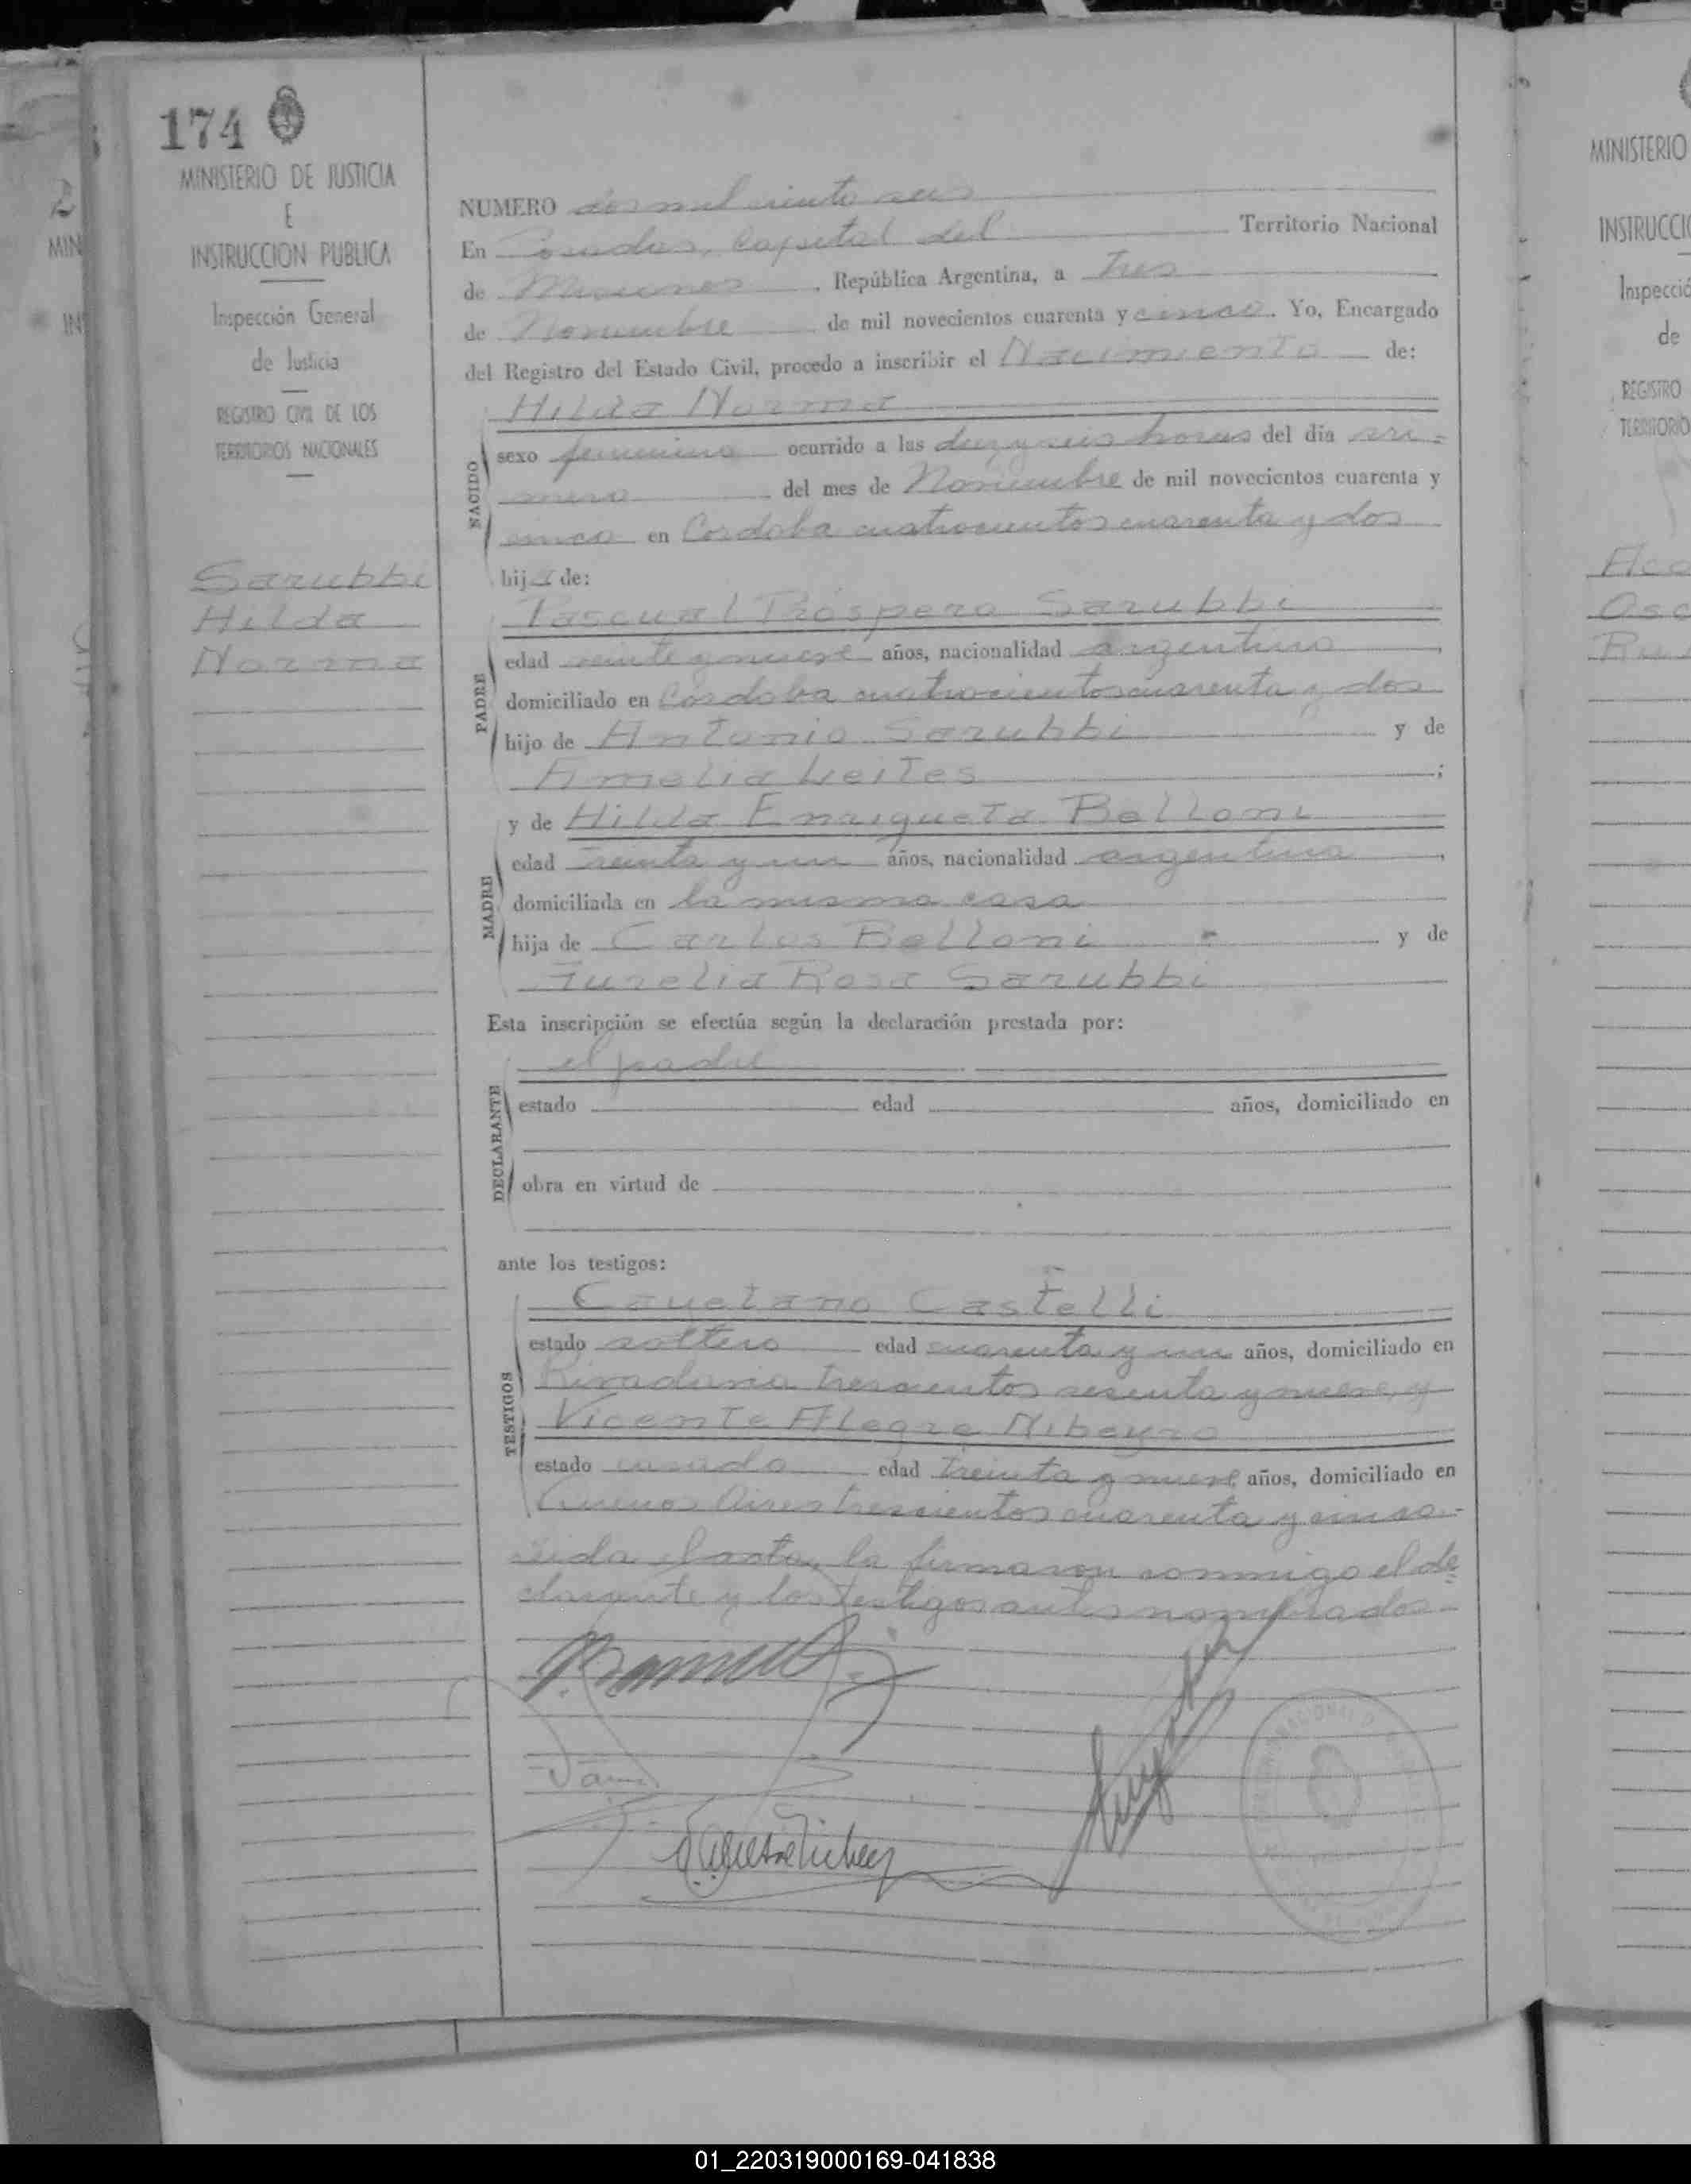 174
MINISTERIO DE JUSTICIA
E
INSTRUCCION PUBLICA
Inspección General
de Justicia
REGISTRO CIVIL DE LOS
TERRITORIOS NACIONALES
Sarubbi
Hilda
Norma
NUMERO dos mil ciento seis
En Posadas, Capital del Territorio Nacional
de Misiones, República Argentina, a Tres
de Noviembre de mil novecientos cuarenta y cinco. Yo, Encargado
del Registro del Estado Civil, procedo a inscribir el Nacimiento de:
Hilda Norma
NACIDO
sexo femenino ocurrido a las diez y seis horas del día pri-
mero del mes de Noviembre de mil novecientos cuarenta y
cinco en Córdoba cuatrocientos cuarenta y dos
hija de:
Pascual Próspero Sarubbi
PADRE
edad veinte y nueve años, nacionalidad argentino,
domiciliado en Córdoba cuatrocientos cuarenta y dos
hijo de Antonio Sarubbi y de
Amelia Leites;
y de Hilda Enriqueta Belloni
MADRE
edad treinta y un años, nacionalidad argentina,
domiciliada en la misma casa
hija de Carlos Belloni y de
Aurelia Rosa Sarubbi
Esta inscripción se efectúa según la declaración prestada por:
el padre
DECLARANTE
estado edad años, domiciliado en
obra en virtud de
ante los testigos:
Cayetano Castelli
TESTIGOS
estado soltero edad cuarenta y un años, domiciliado en
Rivadavia trescientos sesenta y nueve, y
Vicente Alegre Ribeyro
estado casado edad treinta y nueve años, domiciliado en
Buenos Aires trescientos cuarenta y cinco.-
Leida el acta, la firmaron conmigo el de
clarante y los testigos antes nombrados.-
MINISTERIO
INSTRUCCI
Inspecció
de
REGISTRO
TERRITORIO
01_220319000169-041838